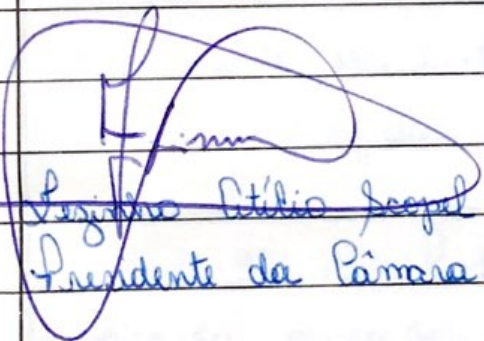 Atílio Scopel
Presidente da Câmara